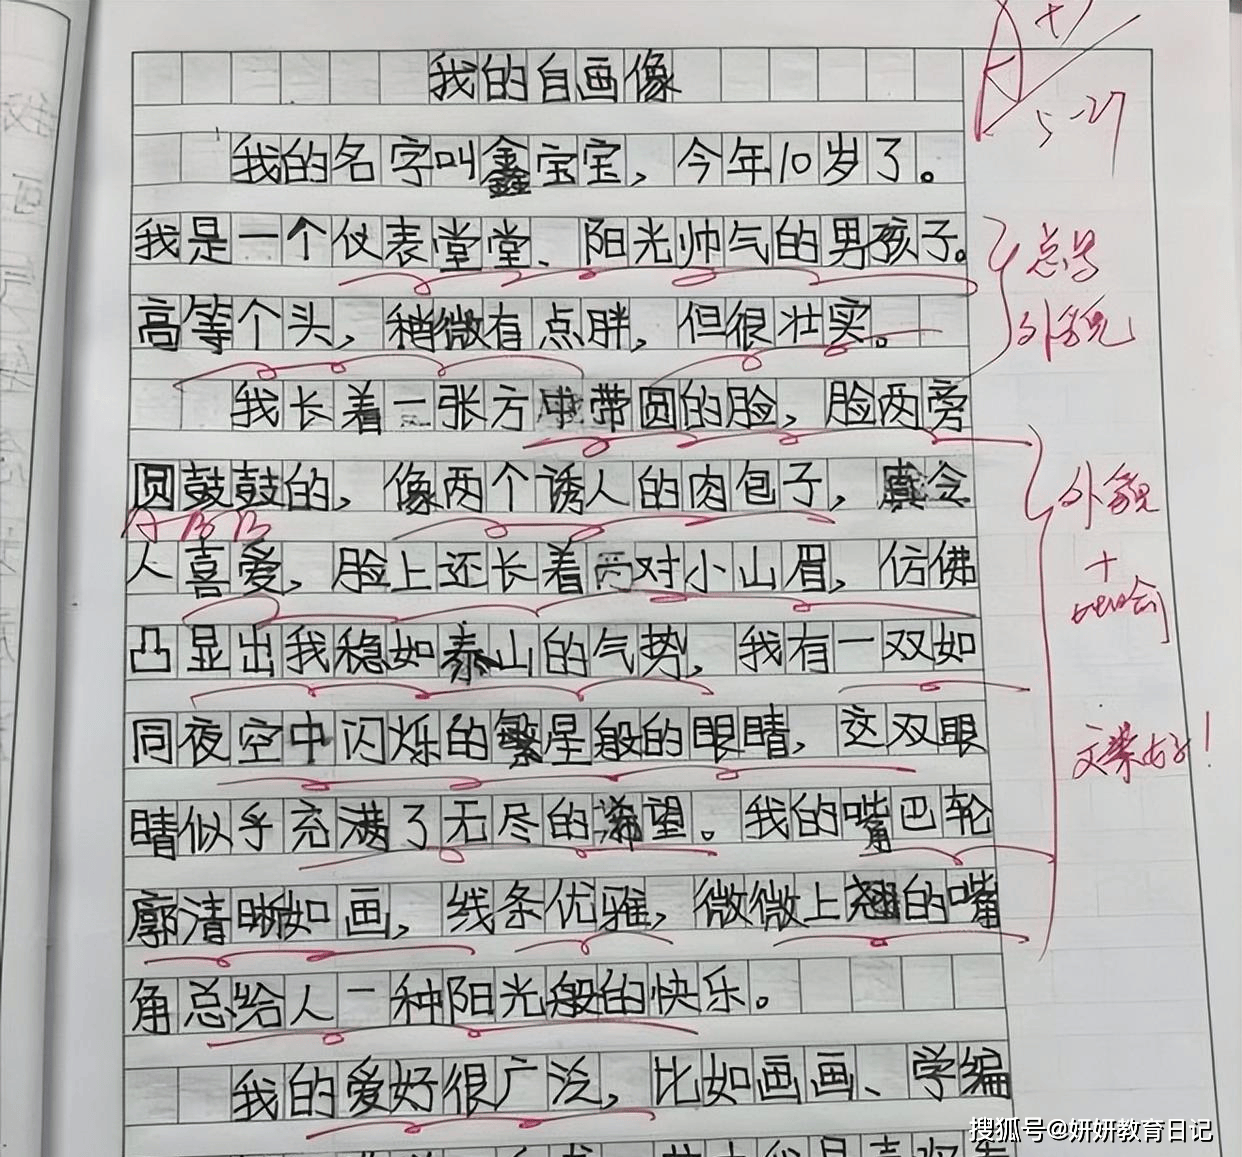 我的自画像
A+
5-27
我的名字叫鑫宝宝，今年10岁了。
我是一个仪表堂堂、阳光帅气的男孩子。
高等个头，稍微有点胖，但很壮实。
外貌
我长着一张方中带圆的脸，脸两旁
圆鼓鼓的，像两个诱人的肉包子，真令
ABB
外貌
+
比喻
人喜爱，脸上还长着两对小山眉，仿佛
凸显出我稳如泰山的气势，我有一双如
同夜空中闪烁的繁星般的眼睛，这双眼
文采好！
睛似乎充满了无尽的希望。我的嘴巴轮
廓清晰如画，线条优雅，微微上翘的嘴
角总给人一种阳光般的快乐。
我的爱好很广泛，比如画画、学编
搜狐号@妍妍教育日记